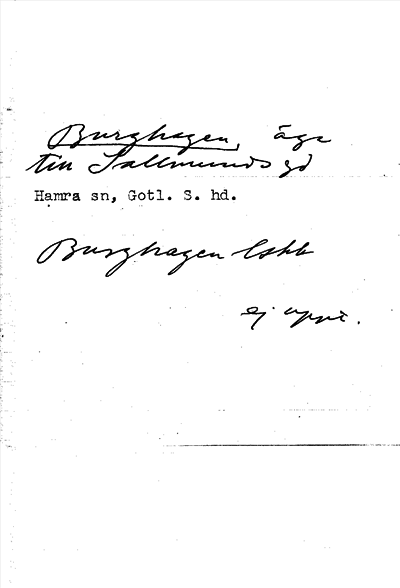 Burghagen, äga
till Sallmunds gd
Hamra sn, Gotl. S. hd.
Burghagen Cskb
ej uppt.